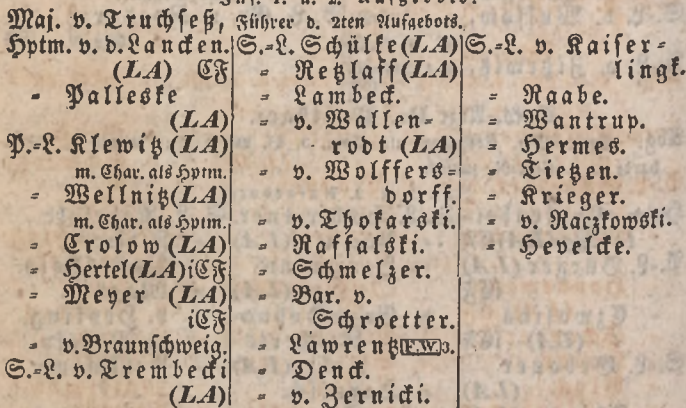 Maj. v. Truchseß, Führer d. 2ten Aufgebots.
Hptm. v. d. Lancken.
(LA) CF
- Palleske
(LA)
P.-L. Klewitz (LA)
m. Char. als Hptm.
- Wellnitz (LA)
m. Char. als Hptm.
- Crolow (LA)
- Hertel (LA) iCF
- Meyer (LA)
iCF
- v. Braunschweig.
S.-L. v. Trembecki
(LA)
S.-L. Schülke (LA)
- Retzlaff (LA)
- Lambeck.
- v. Wallen-
rodt (LA)
- v. Wolffers-
dorff.
- v. Thokarski.
- Raffalski.
- Schmelzer.
- Bar. v.
Schroetter.
- Lawrentz F.W.3.
- Denck.
- v. Zernicki.
S.-L. v. Kaiser-
lingk.
- Raabe.
- Wantrup.
- Hermes.
- Tietzen.
- Krieger.
- v. Raczkowski.
- Hevelcke.